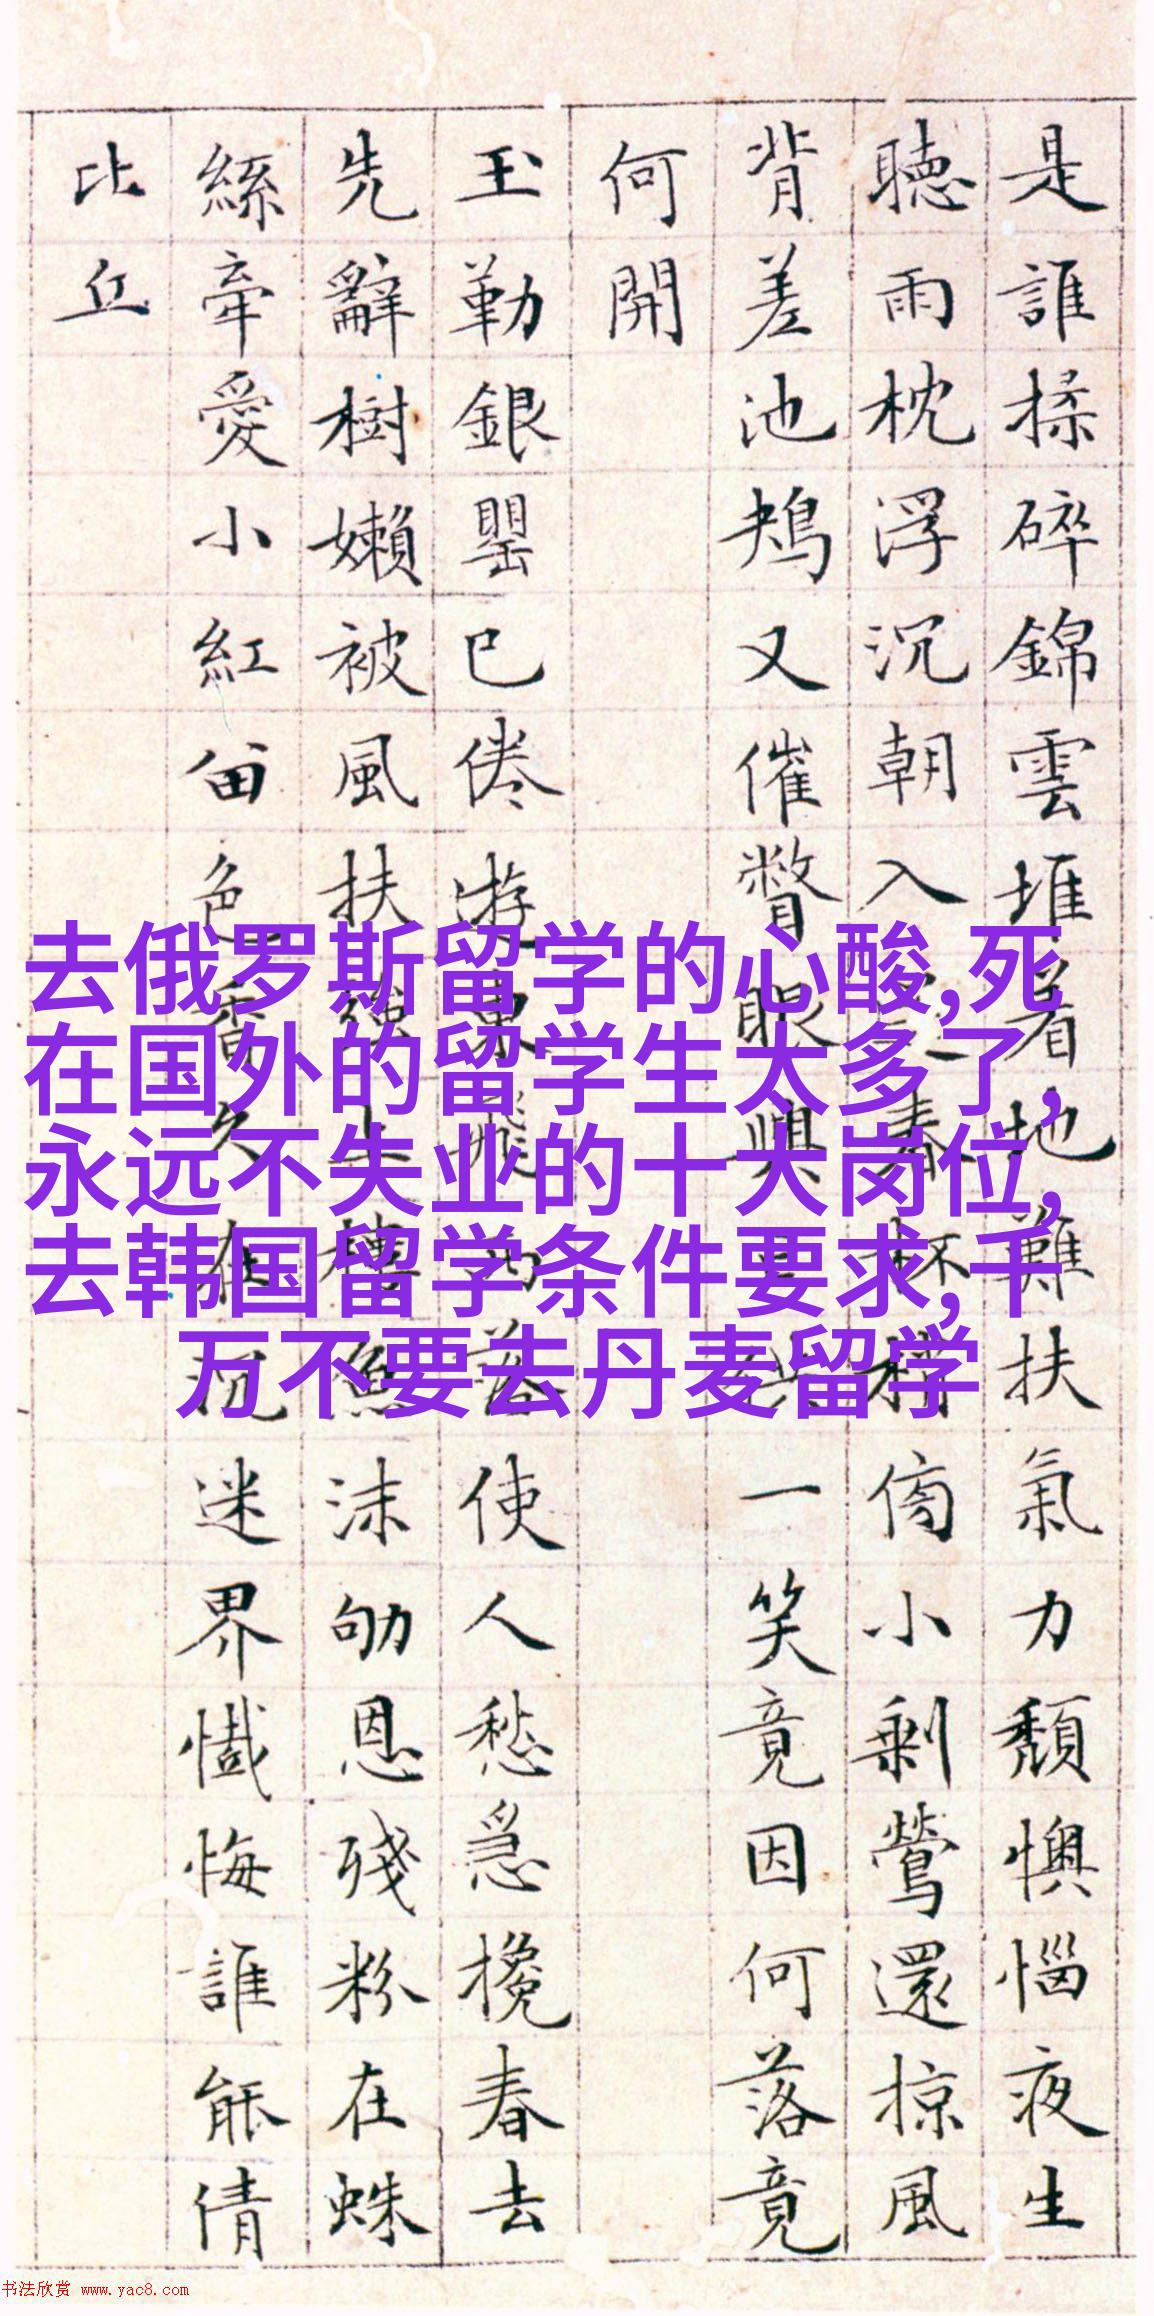 是誰揉碎錦雲堆着地難扶氣力頹懊惱夜生
聽雨枕浮沉朝入春杯小剩鶯還掠風
背差池鳺又催瞥眼興一笑竟因何落竟
何開
玉勒銀罌已倦游東飛西落使人愁急攙春去
先辭樹嬾被風扶強上樓魚沫劬恩殘粉在蛛
絲牽愛小紅留色香久在沉迷界懺悔誰能倩
比丘
去俄罗斯留学的心酸,死
在国外的留学生太多了,
永远不失业的十大岗位,
去韩国留学条件要求,千
万不要去丹麦留学
书法欣赏 www.yac8.com